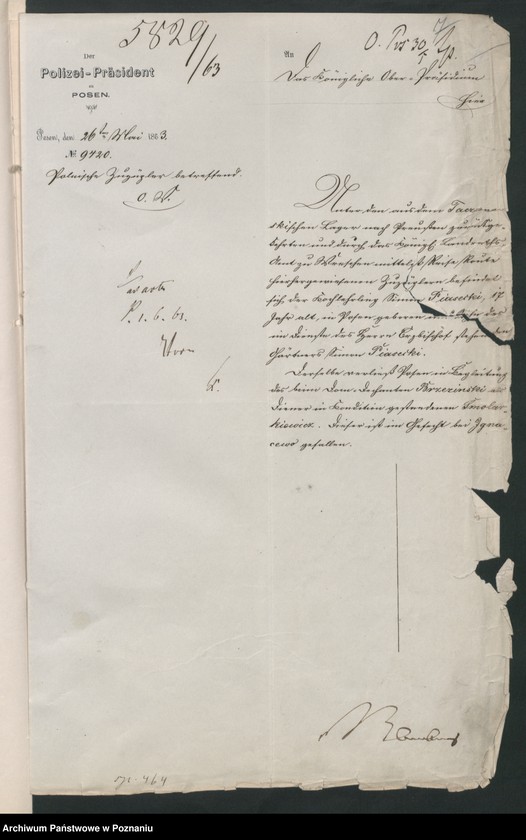 5829/63
O. Prs 30/5
Der
Polizei-Präsident
zu
POSEN.
An
Das Königliche Ober-Präsidium
Hier
Posen, den 26ten Mai 1863.
№ 9420.
Polnische Zuzügler betreffend.
Unter den aus dem Taczanow-
skischen Lager nach Preußen zurückge-
kehrten und durch das Königl. Landraths-
Amt zu Wreschen mittelst Reise-Route
hierhergewiesenen Zuzüglern befindet
sich der Kochlehrling Simon Piasecki, 17
Jahr alt, in Posen geboren und Sohn des
im Dienste des Herrn Erzbischof stehenden
Gärtners Simon Piasecki.
Derselbe verließ Posen in Begleitung
des beim Dom-Dechanten Brzezinski als
Diener in Kondition gestandenen Smolar-
kiewicz. Dieser ist im Gefecht bei Igna-
cewo gefallen.
ad acta
P. 1. 6. 63.
Archiwum Państwowe w Poznaniu